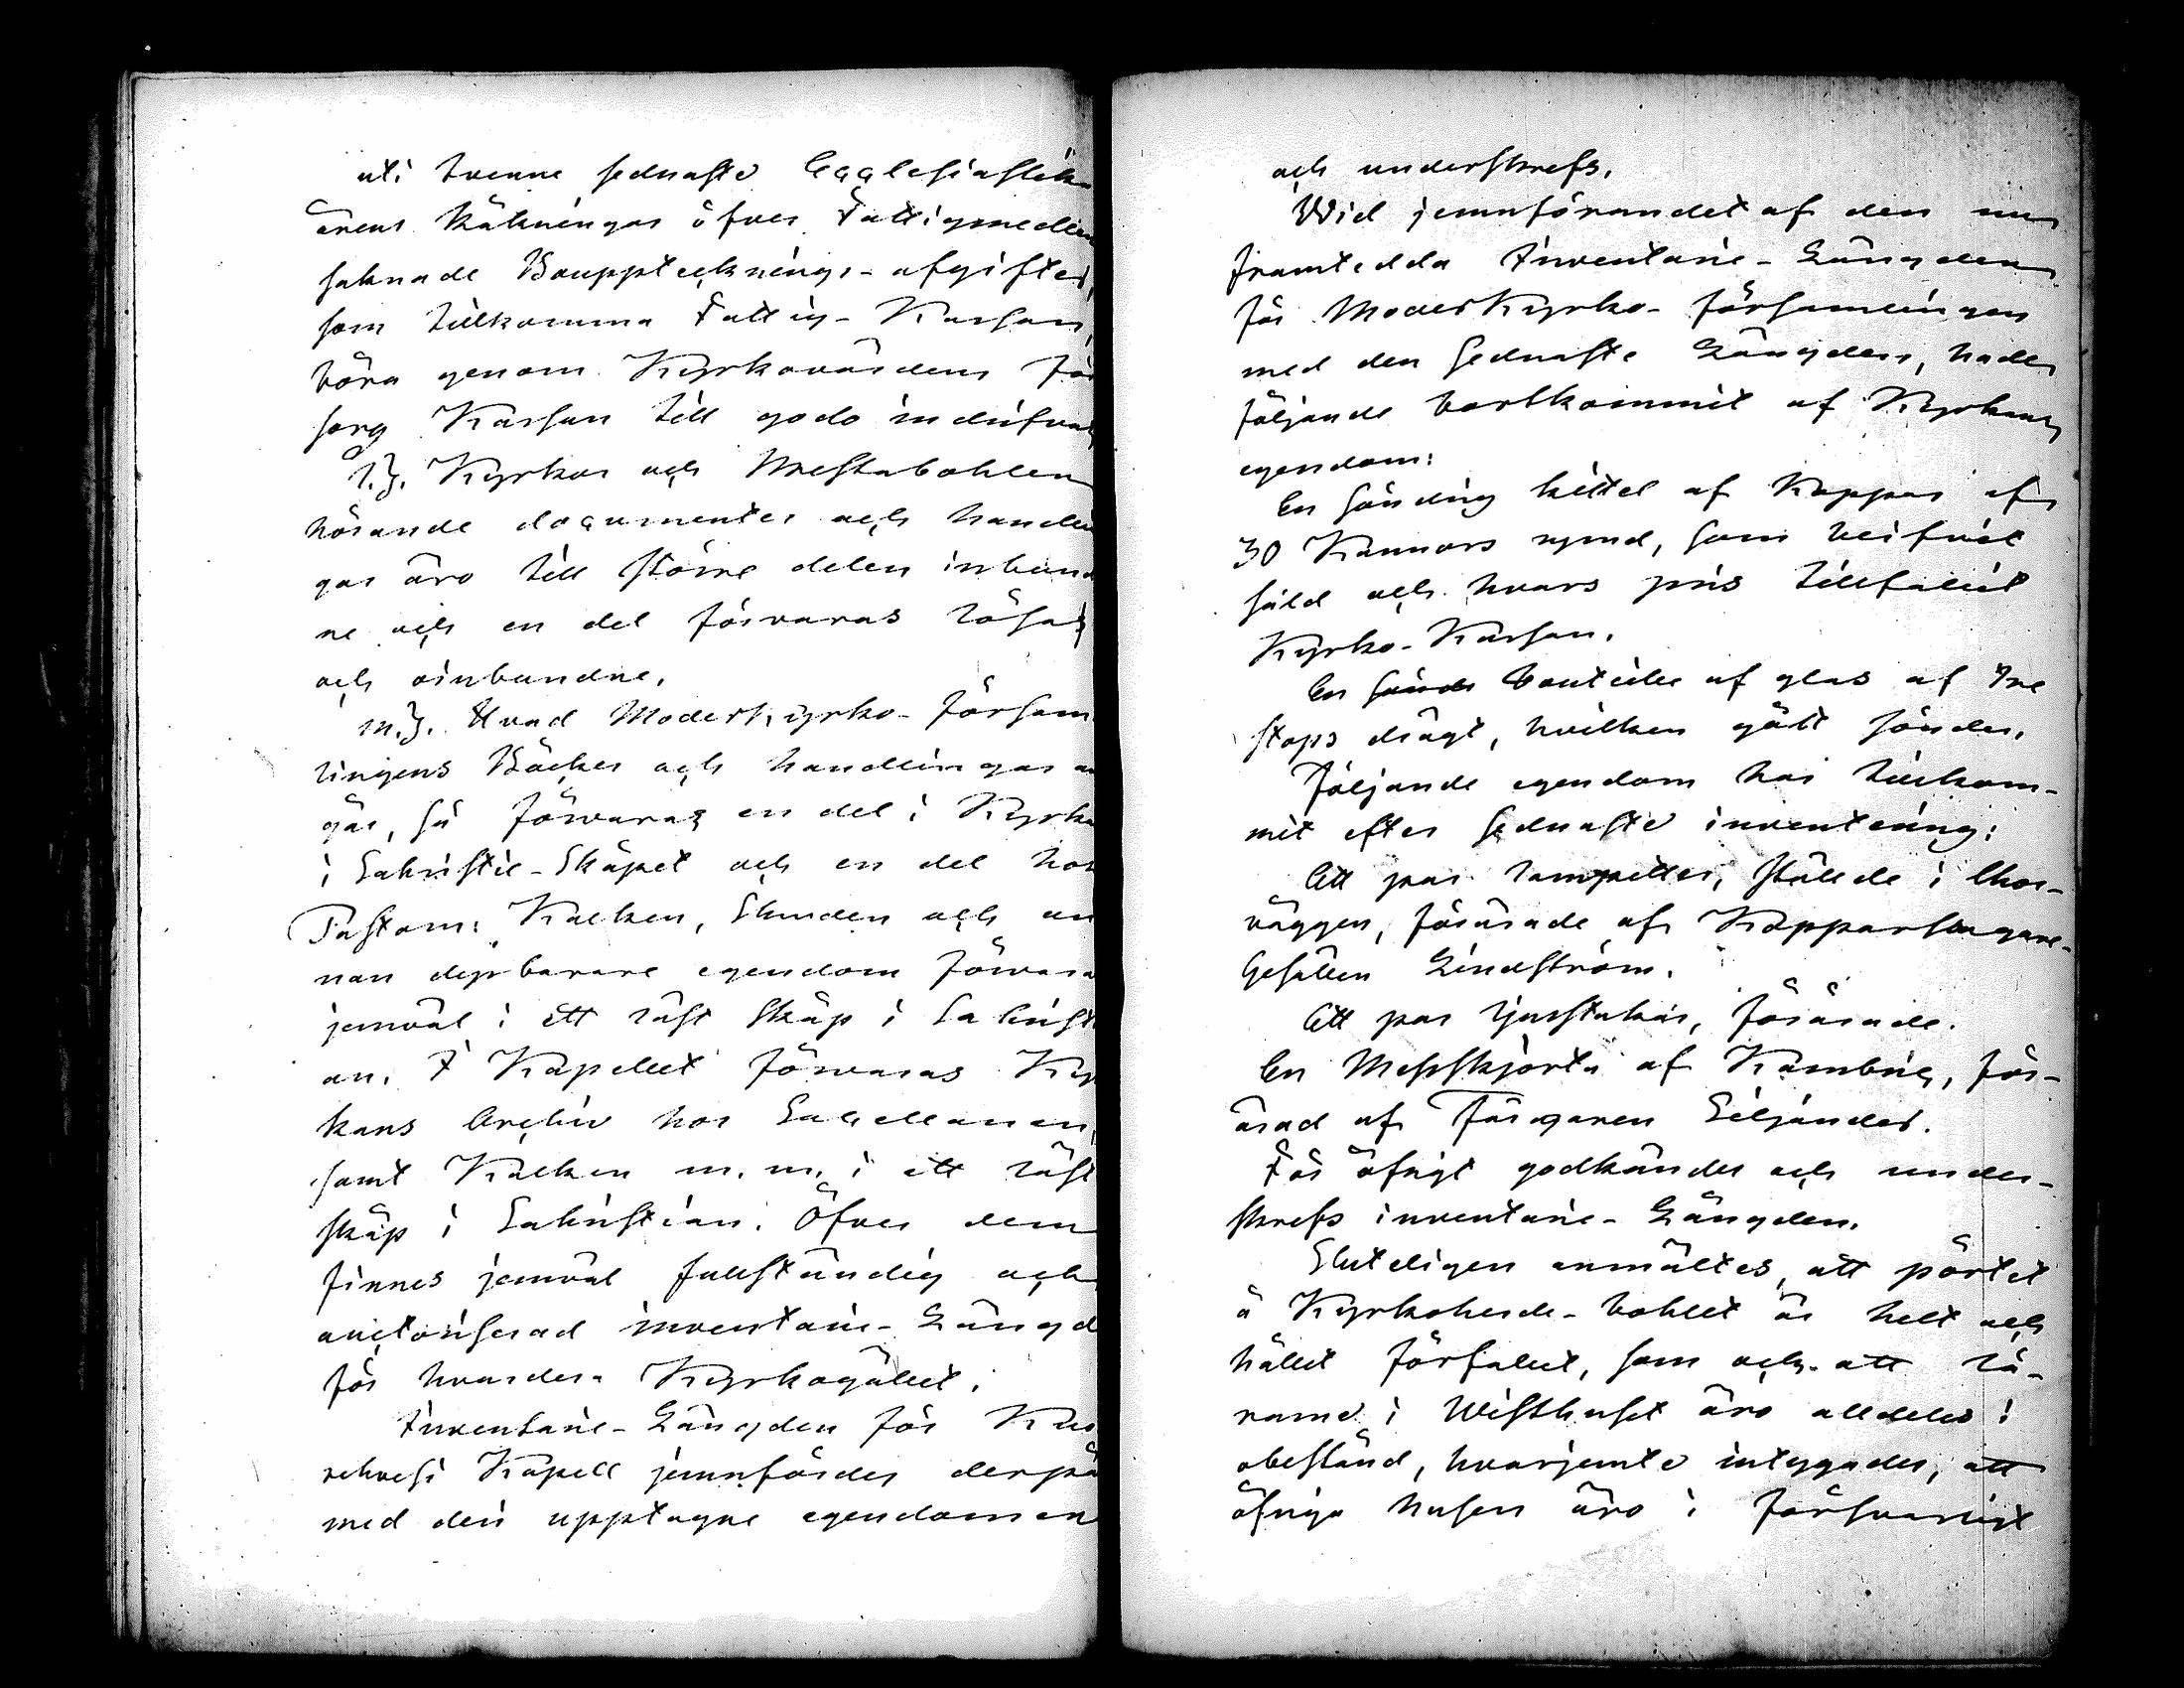 uti tvenne sednaste Ecclesiastik
årens Räkningar öfver Fattigmedlen
saknade Boupptecknings-afgifter,
som tillkomma Fattig-Kassan,
böra genom Kyrkovärdens för
sorg Kassan till godo indrifvas
l.). Kyrkor och Prestabohlen
hörande documenter och handlin
gar äro till större delen inbund
ne och en del förvaras lösa
och oinbundne.
m.). Hvad Moderkyrko-Försam
lingens Böcker och handlingar an
går, så förvaras en del i Kyrka
i Sakristie-Skåpet och en del hos
Pastorn: Kalken, Skruden och an
nan dyrbarare egendom förvara
jemväl i ett låst skåp i Sakrist
an. I Kapellet förvaras Kyr
kans Archiv hos Sacellanen,
samt Kalken m.m. i ett låst
skåp i Sakristian. Öfver dem
finnes jemväl fullständig och
auctoriserad inventarie-Längd
för hvardera Kyrkogället.
Inventarie-Längden för
Kapell jemnfördes derpå
med den upptagne egendomen
och underskrefs.
Wid jemnförandet af den nu
framtedda Inventarie-Längden
för Moderkyrko-församlingen
med den sednaste Längden, hade
följande bortkommit af Kyrkans
egendom:
En söndrig kittel af Koppar af
30 Kannors rymd, som blifvit
såld och hvars pris tillfallit
Kyrko-Kassan.
En bouteille af glas af Tre
stops drägt, hvilken gått sönder.
Följande egendom har tillkom-
mit efter sednaste inventering:
Ett par lampetter, ställde i Chor-
väggen, förärade af Kopparslagare-
Gesällen Lindström.
Ett par ljusstakar, förärade.
En Messskjorta af Kambrick, för-
ärad af Färgaren Siljander.
För öfrigt godkändes och under-
skrefs inventarie-Längden.
Sluteligen anmältes, att pörtet
å Kyrkoherde-bohlet är helt och
hållet förfallet, som och att lå-
rarne i Wisthuset äro alldeles i
obestånd, hvarjemte intygades, att
öfriga husen äro i försvarligt